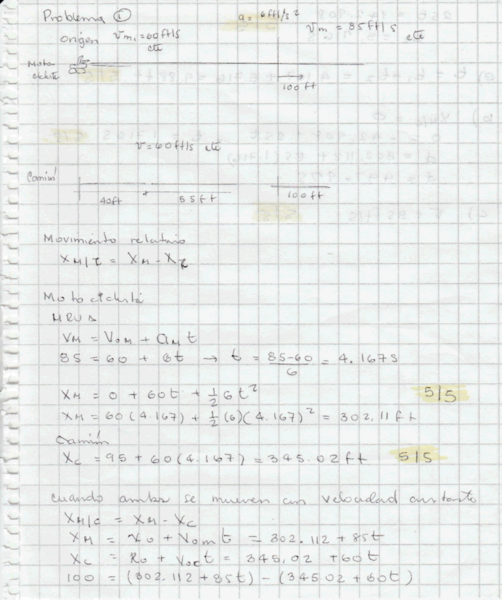 Problema ①
a = 6 ft/s²
origen Vm₁ = 60 ft/s
cte
Vm = 85 ft/s
cte
Moto
ciclista
100 ft
V = 60 ft/s cte
Camión
40ft
55ft
100ft
Movimiento relativo
X M/C = X M - X C
Motociclista
MRUA
VM = VOM + aM t
85 = 60 + 6t → t = 85-60 / 6 = 4.167s
XM = 0 + 60t + ½ 6t²
5/5
XM = 60(4.167) + ½ (6)(4.167)² = 302.11ft
Camión
XC = 95 + 60(4.167) = 345.02ft 5/5
cuando ambos se mueven con velocidad constante
X M/C = XM - XC
XM = X0 + V0M t = 302.112 + 85t
XC = X0 + V0C t = 345.02 + 60t
100 = (302.112 + 85t) - (345.02 + 60t)